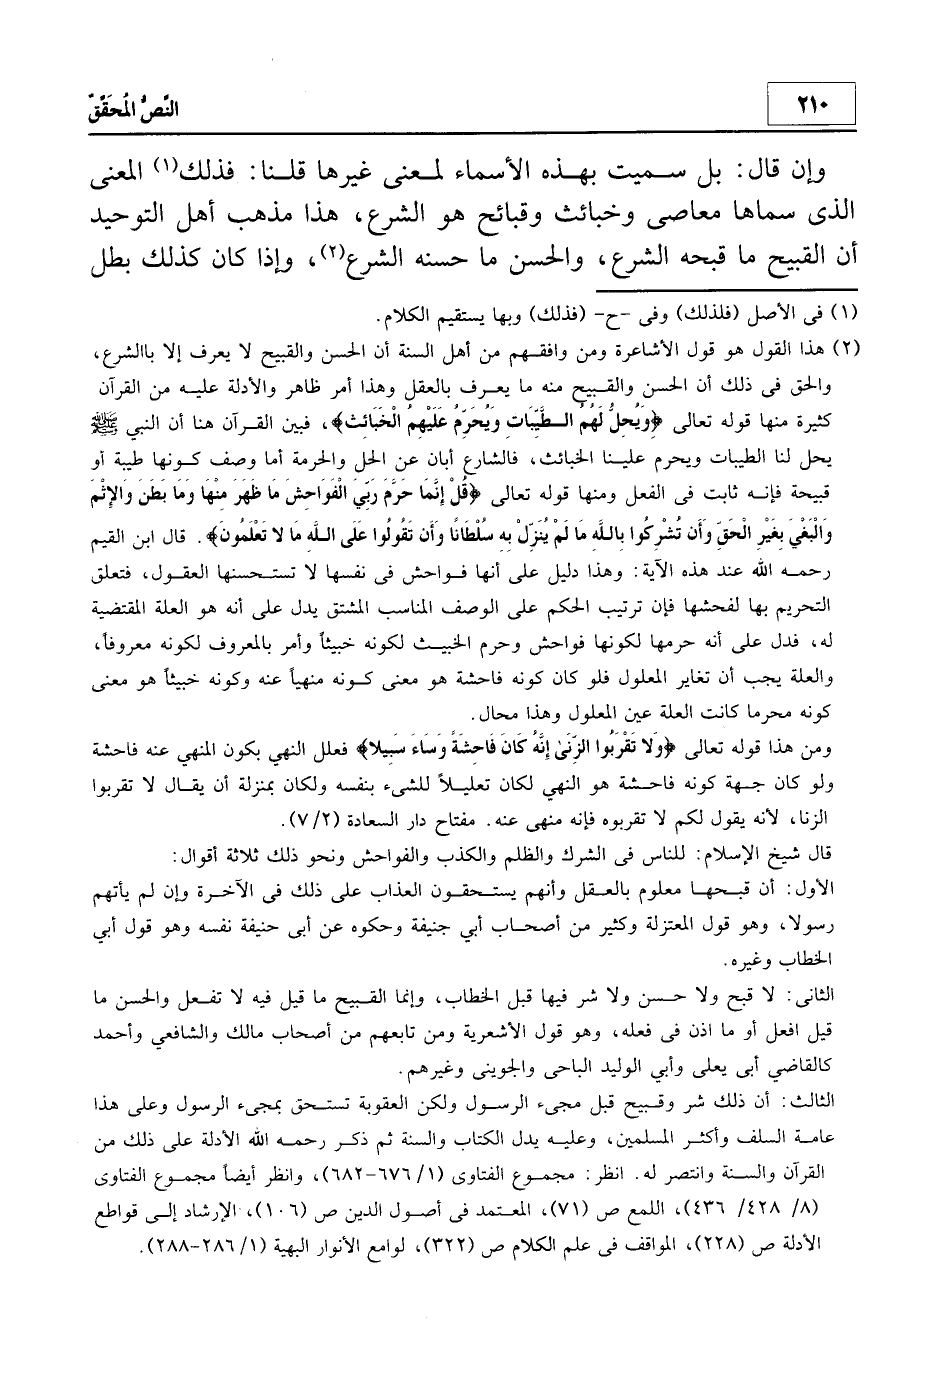 ٢١٠
النَّصُّ المُحَقَّقْ
وإن قال: بل سميت بهذه الأسماء لمعنى غيرها قلنا: فذلك(١) المعنى
الذى سماها معاصى وخبائث وقبائح هو الشرع، هذا مذهب أهل التوحيد
أن القبيح ما قبحه الشرع، والحسن ما حسنه الشرع(٢)، وإذا كان كذلك بطل
(١) فى الأصل (فلذلك) وفى -ح- (فذلك) وبها يستقيم الكلام.
(٢) هذا القول هو قول الأشاعرة ومن وافقهم من أهل السنة أن الحسن والقبيح لا يعرف إلا باالشرع،
والحق فى ذلك أن الحسن والقبيح منه ما يعرف بالعقل وهذا أمر ظاهر والأدلة عليه من القرآن
كثيرة منها قوله تعالى ﴿وَيُحِلُّ لَهُمُ الطَّيِّبَاتِ وَيُحَرِّمُ عَلَيْهِمُ الْخَبَائِثَ﴾، فبين القرآن هنا أن النبي ﷺ
يحل لنا الطيبات ويحرم علينا الخبائث، فالشارع أبان عن الحل والحرمة أما وصف كونها طيبة أو
قبيحة فإنه ثابت فى الفعل ومنها قوله تعالى ﴿قُلْ إِنَّمَا حَرَّمَ رَبِّيَ الْفَوَاحِشَ مَا ظَهَرَ مِنْهَا وَمَا بَطَنَ وَالإِثْمَ
وَالْبَغْيَ بِغَيْرِ الْحَقِّ وَأَن تُشْرِكُوا بِاللَّهِ مَا لَمْ يُنَزِّلْ بِهِ سُلْطَانًا وَأَن تَقُولُوا عَلَى اللَّهِ مَا لا تَعْلَمُونَ﴾. قال ابن القيم
رحمه الله عند هذه الآية: وهذا دليل على أنها فواحش فى نفسها لا تستحسنها العقول، فتعلق
التحريم بها لفحشها فإن ترتيب الحكم على الوصف المناسب المشتق يدل على أنه هو العلة المقتضية
له، فدل على أنه حرمها لكونها فواحش وحرم الخبيث لكونه خبيثاً وأمر بالمعروف لكونه معروفاً،
والعلة يجب أن تغاير المعلول فلو كان كونه فاحشة هو معنى كونه منهياً عنه وكونه خبيثاً هو معنى
كونه محرما كانت العلة عين المعلول وهذا محال.
ومن هذا قوله تعالى ﴿وَلا تَقْرَبُوا الزِّنَىٰ إِنَّهُ كَانَ فَاحِشَةً وَسَاءَ سَبِيلا﴾ فعلل النهي بكون المنهي عنه فاحشة
ولو كان جهة كونه فاحشة هو النهي لكان تعليلاً للشىء بنفسه ولكان بمنزلة أن يقال لا تقربوا
الزنا، لأنه يقول لكم لا تقربوه فإنه منهى عنه. مفتاح دار السعادة (٢/٧).
قال شيخ الإسلام: للناس فى الشرك والظلم والكذب والفواحش ونحو ذلك ثلاثة أقوال:
الأول: أن قبحها معلوم بالعقل وأنهم يستحقون العذاب على ذلك فى الآخرة وإن لم يأتهم
رسولا، وهو قول المعتزلة وكثير من أصحاب أبي جنيفة وحكوه عن أبى حنيفة نفسه وهو قول أبي
الخطاب وغيره.
الثانى: لا قبح ولا حسن ولا شر فيها قبل الخطاب، وإنما القبيح ما قيل فيه لا تفعل والحسن ما
قيل افعل أو ما اذن فى فعله، وهو قول الأشعرية ومن تابعهم من أصحاب مالك والشافعي وأحمد
كالقاضي أبى يعلى وأبي الوليد الباحى والجوينى وغيرهم.
الثالث: أن ذلك شر وقبيح قبل مجىء الرسول ولكن العقوبة تستحق بمجىء الرسول وعلى هذا
عامة السلف وأكثر المسلمين، وعليه يدل الكتاب والسنة ثم ذكر رحمه الله الأدلة على ذلك من
القرآن والسنة وانتصر له. انظر: مجموع الفتاوى (١/ ٦٧٦-٦٨٢)، وانظر أيضاً مجموع الفتاوى
(٨/ ٤٢٨/ ٤٣٦)، اللمع ص (٧١)، المعتمد فى أصول الدين ص (١٠٦)، الإرشاد إلى قواطع
الأدلة ص (٢٢٨)، المواقف فى علم الكلام ص (٣٢٢)، لوامع الأنوار البهية (١/ ٢٨٦-٢٨٨).